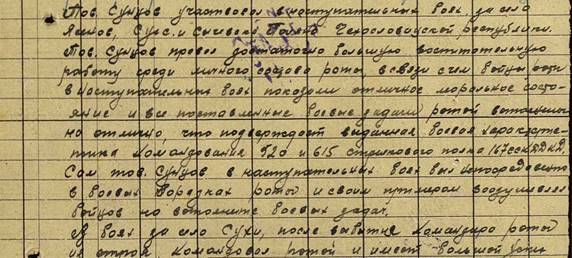 Тов. Сунцов участвовал в наступательных боях за село
Яснов, и Чехословацкой республики.
Тов. Сунцов провел достаточно большую воспитательную
работу среди личного состава роты, в связи с чем бойцы роты
в наступательных боях показали отличное моральное состо-
яние и все поставленные боевые задачи ротой выполнены
на отлично, что подтверждает выданная боевая характерис-
тика командования 520 и 615 стрелкового полка 167 ССККДКД.
Сам тов. Сунцов в наступательных боях был непосредственно
в боевых порядках ротой и своим примером воодушевлял
бойцов на выполнение боевых задач.
В боях за село Сухи, после выбытия командира ротой
из строя, командовал ротой и имеет большой успех